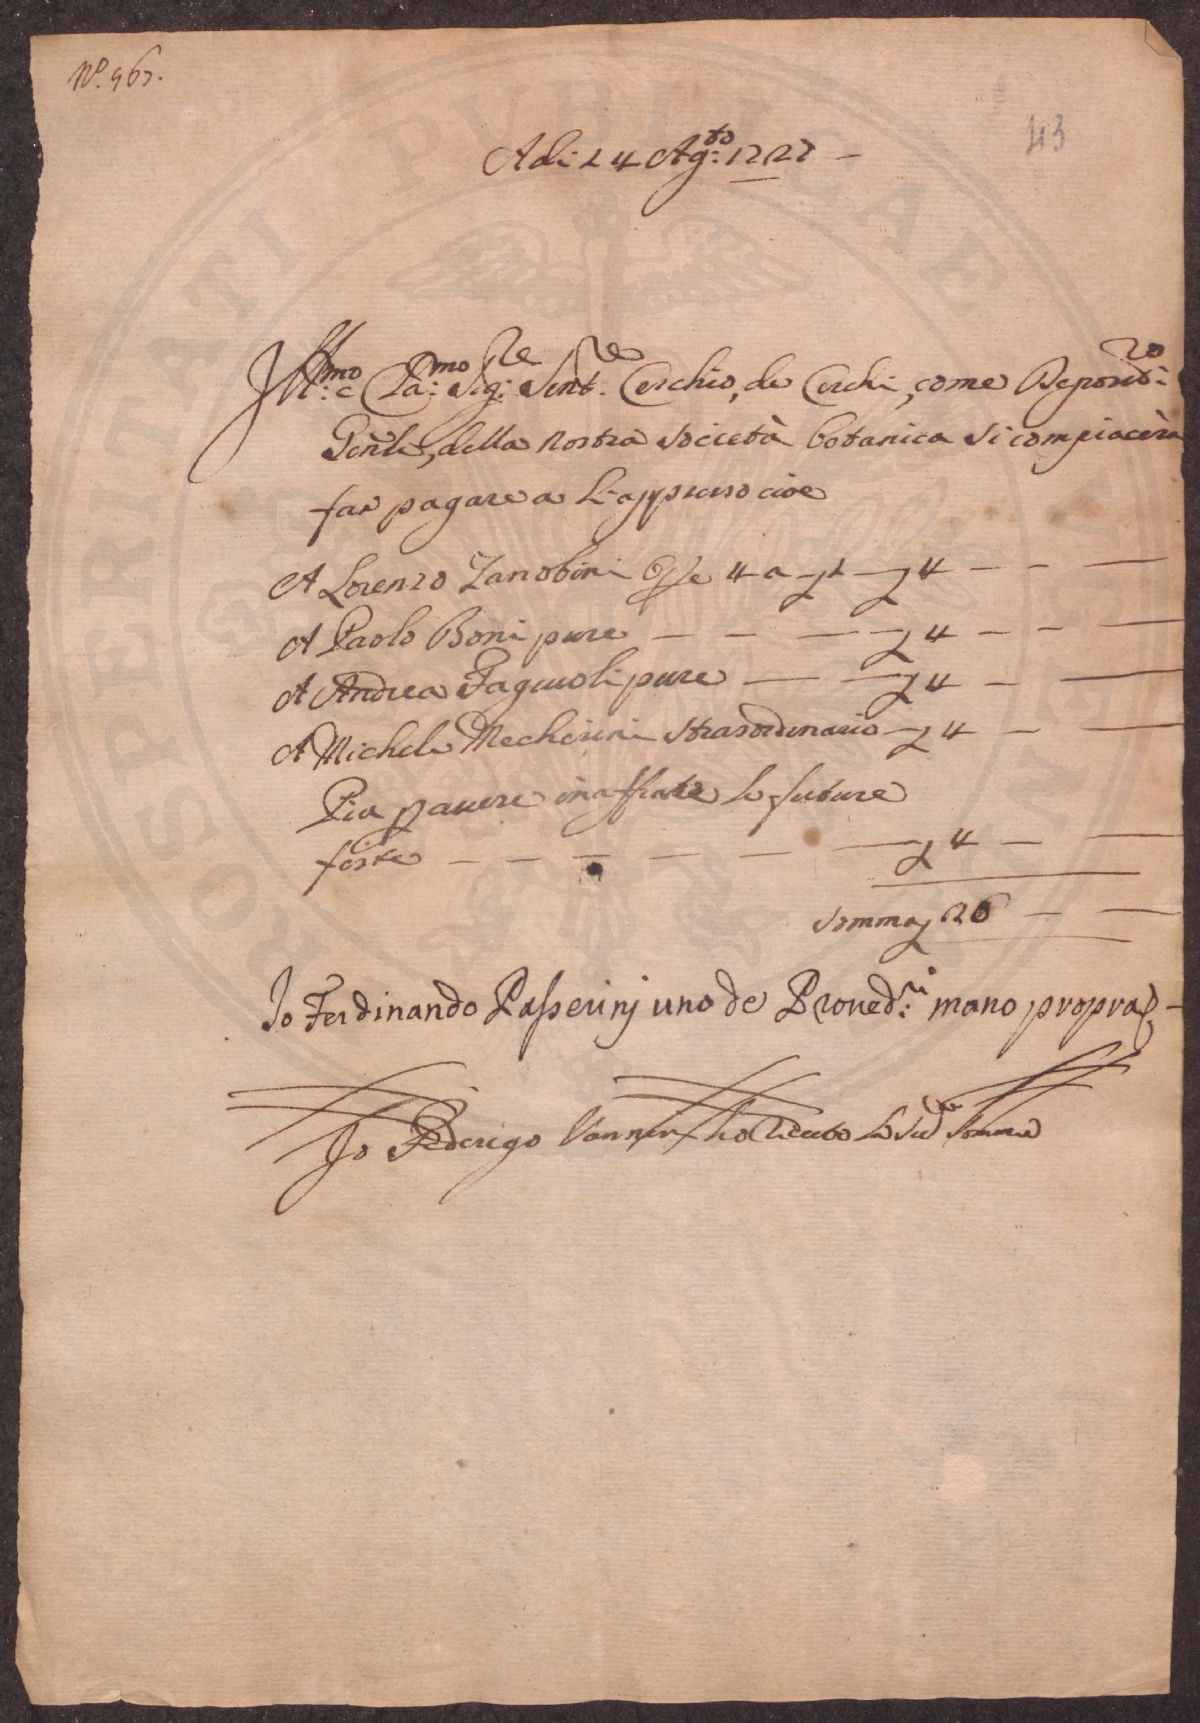 N.º 967.
43
A di 24 Ag:to 1727 –
Ill:mo e Cla:mo Sig:re Sen:re Cerchio, de Cerchi, come Deposit:rio
Genle, della nostra Società botanica si compiacerà
far pagare a li appresso cioe
A Lorenzo Zanobini Ope 4 a – – 4 – – –
A Paolo Boni pure – – – – 4 – – –
A Andrea Fagiuoli pure – – – 4 – –
A Michele Mecherini Straordinario – 4 – –
Pia p avere inaffiate le future
feste – – – – – – – 4 – –
Somma 26 – –
Io Ferdinando Passerinj uno de Proved:ri mano propra –
Io Federigo Vannini ho riceuto la Sud:a Somma
PROSPERITATI PUBLICAE